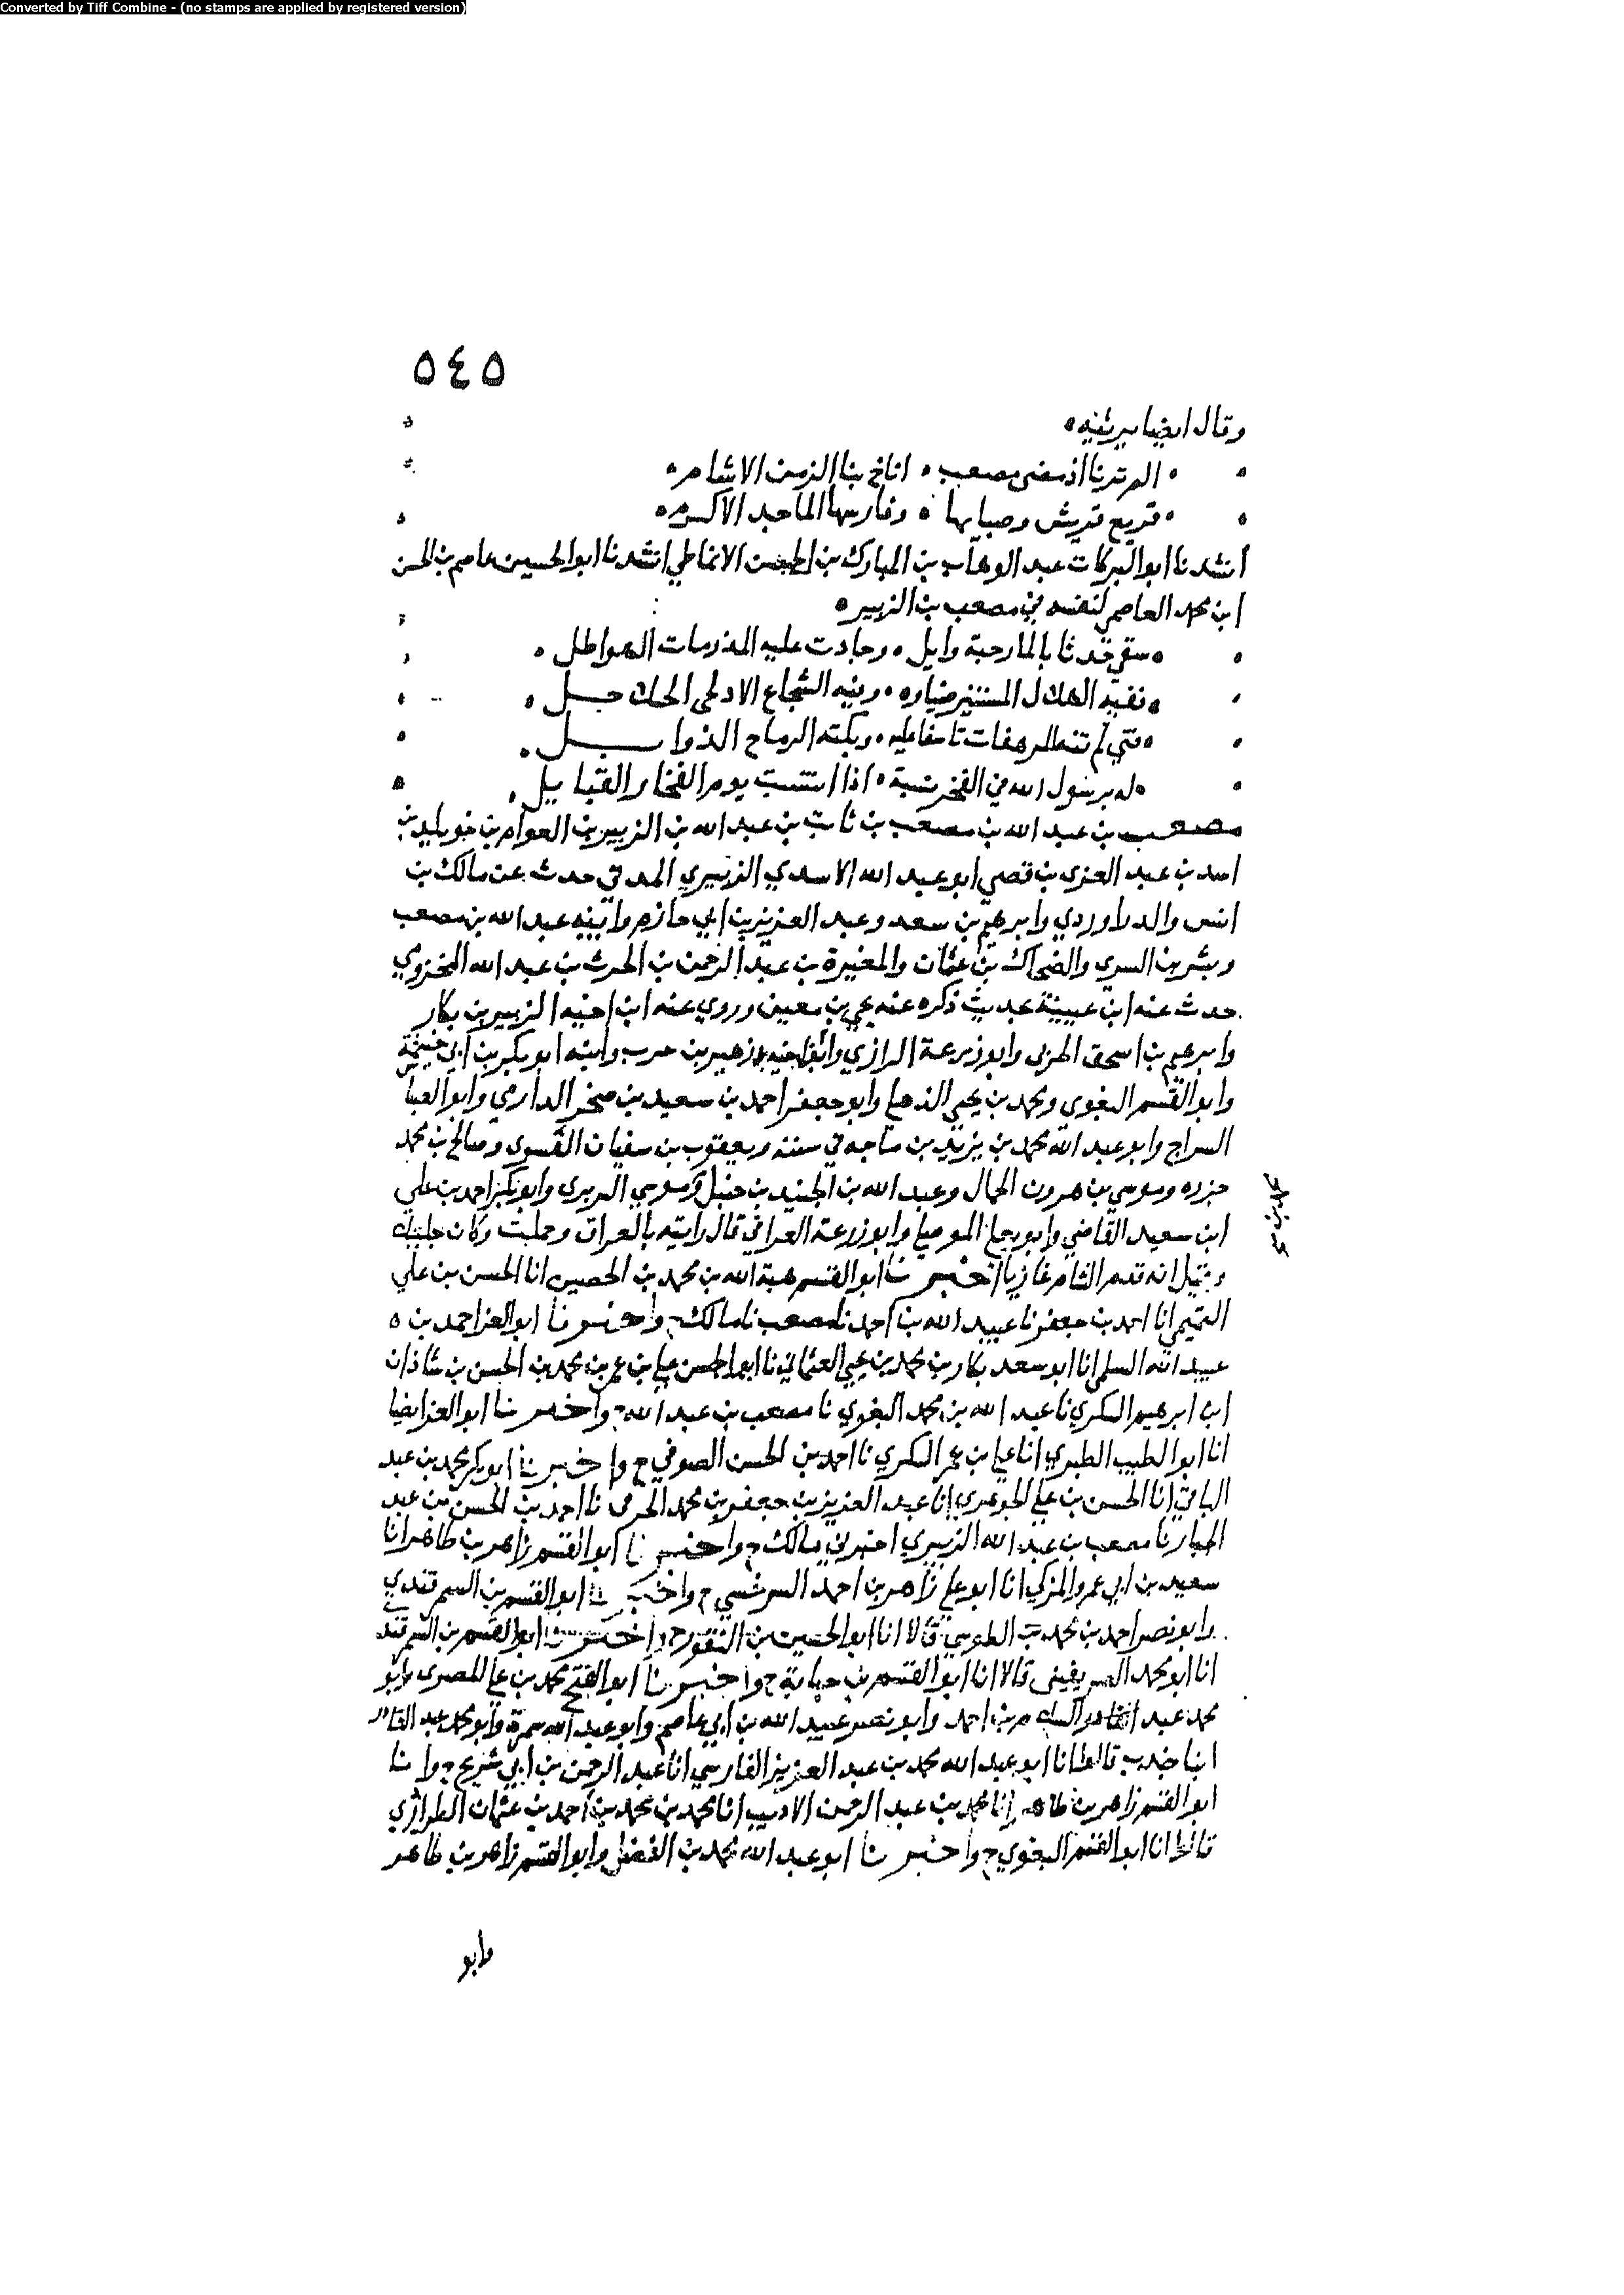 Converted by Tiff Combine - (no stamps are applied by registered version)
٥٤٥
وقال ايضا يرثيه
الم ترنا اذ مضى مصعب اناخ بنا الزمن الاشام
قريع قريش وصيابها وفارسها الماجد الاكرم
انشدنا ابو البركات عبد الوهاب بن المبارك بن الانماطي انشدنا ابو الحسين عاصم بن الحسن
ابن محمد العاصمي لنفسه في مصعب بن الزبير
سقى جدثا وابل وجادت عليه المرزمات الهواطل
ففيه الهلال المستنير ضياوه وفيه الشجاع
فتى لم تنله المرهفات تاسفا عليه وبكته الرماح الذوابل
له برسول الله في الفخر نسبة اذا انتسبت يوم الفخار القبايل
مصعب بن عبد الله بن مصعب بن ثابت بن عبد الله بن الزبير بن العوام بن خويلد بن
اسد بن عبد العزى بن قصي ابو عبد الله الاسدي الزبيري المدني حدث عن مالك بن
انس والدراوردي وابرهيم بن سعد وعبد العزيز بن ابي حازم وابيه عبد الله بن مصعب
وبشر بن السري والضحاك بن عثمان والمغيرة بن عبد الرحمن بن الحرث بن عبد الله المخزومي
حدث عنه ابن عيينة بحديث ذكره عنه يحيى بن معين وروى عنه ابن اخيه الزبير بن بكار
وابرهيم بن اسحق الحربي وابو زرعة الرازي وابو خيثمة زهير بن حرب وابنه ابو بكر بن ابي خيثمة
وابو القسم البغوي ومحمد بن يحيى الذهلي وابو جعفر احمد بن سعيد بن صخر الدارمي وابو العبا
السراج وابو عبد الله محمد بن يزيد بن ماجه في سننه ويعقوب بن سفيان الفسوي وصالح بن محمد
جزره وموسى بن هرون الحمال وعبد الله بن احمد بن حنبل وابو بكر احمد بن علي
ابن سعيد القاضي وابو يعلى الموصلي وابو زرعة قال رايته بالعراق وكان جليلا
وقيل انه قدم الشام غازيا اخبرنا ابو القسم هبة الله بن محمد بن الحصين انا الحسن بن علي
التميمي انا احمد بن جعفر نا عبد الله بن احمد نا مصعب نا مالك ح واخبرنا ابو العز احمد بن
عبيد الله السلمي انا ابو سعد بكار بن محمد بن يحيى العثماني نا ابو الحسن علي بن عمر بن محمد بن الحسن بن شاذان
ابن ابرهيم السكري نا عبد الله بن محمد البغوي نا مصعب بن عبد الله ح واخبرنا ابو العز ايضا
انا ابو الطيب الطبري انا علي بن عمر السكري نا احمد بن الحسن الصوفي ح واخبرنا ابو بكر محمد بن عبد
الباقي انا الحسن بن علي الجوهري انا عبد العزيز بن جعفر بن محمد الخرقي نا احمد بن الحسن بن عبد
الجبار نا مصعب بن عبد الله الزبيري اخبرني مالك ح واخبرنا ابو القسم زاهر بن طاهر انا
سعيد بن ابي عمرو المزكي انا ابو علي زاهر بن احمد السرخسي ح واخبرنا ابو القسم بن السمرقندي
وابو نصر احمد بن محمد بن الطوسي قالا انا ابو الحسين بن النقور ح واخبرنا ابو القسم بن السمرقند
انا ابو محمد الصريفيني قالا انا ابو القسم بن حبابة ح واخبرنا ابو الفتح محمد بن علي المصري وابو
محمد عبد بن احمد وابو نصر عبيد الله بن ابي عاصم وابو عبد الله سمرة وابو محمد عبد القادر
ابنا جندب قالوا انا ابو عبد الله محمد بن عبد العزيز الفارسي انا عبد الرحمن بن ابي شريح ح وانا
ابو القسم زاهر بن طاهر انا محمد بن عبد الرحمن الاديب انا محمد بن محمد بن احمد بن عثمان الطرازي
قالوا انا ابو القسم البغوي ح واخبرنا ابو عبد الله محمد بن الفضل وابو القسم زاهر بن طاهر
وابو